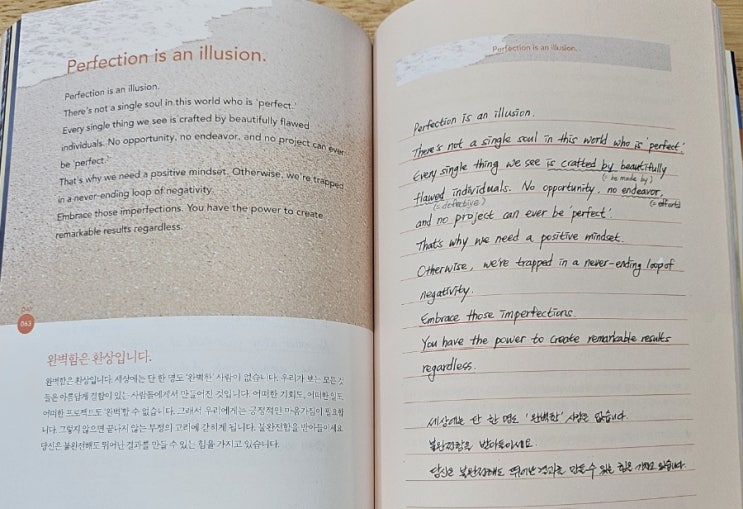 Perfection is an illusion.
Perfection is an illusion.
There's not a single soul in this world who is 'perfect.'
Every single thing we see is crafted by beautifully flawed
individuals. No opportunity, no endeavor, and no project can ever
be 'perfect.'
That's why we need a positive mindset. Otherwise, we're trapped
in a never-ending loop of negativity.
Embrace those imperfections. You have the power to create
remarkable results regardless.
DAY
063
완벽함은 환상입니다.
완벽함은 환상입니다. 세상에는 단 한 명도 '완벽한' 사람이 없습니다. 우리가 보는 모든 것
들은 아름답게 결함이 있는 사람들에게서 만들어진 것입니다. 어떠한 기회도, 어떠한 일도,
어떠한 프로젝트도 '완벽'할 수 없습니다. 그래서 우리에게는 긍정적인 마음가짐이 필요합
니다. 그렇지 않으면 끝나지 않는 부정의 고리에 갇히게 됩니다. 불완전함을 받아들이세요.
당신은 불완전해도 뛰어난 결과를 만들 수 있는 힘을 가지고 있습니다.
Perfection is an illusion.
Perfection is an illusion.
There's not a single soul in this world who is 'perfect.'
Every single thing we see is crafted by beautifully
(= be made by)
flawed individuals. No opportunity, no endeavor,
(= defective)
(= effort)
and no project can ever be 'perfect'.
That's why we need a positive mindset.
Otherwise, we're trapped in a never-ending loop of
negativity.
Embrace those imperfections.
You have the power to create remarkable results
regardless.
세상에는 단 한 명도 '완벽한' 사람은 없습니다.
불완전함을 받아들이세요.
당신은 불완전해도 뛰어난 결과를 만들 수 있는 힘을 가지고 있습니다.